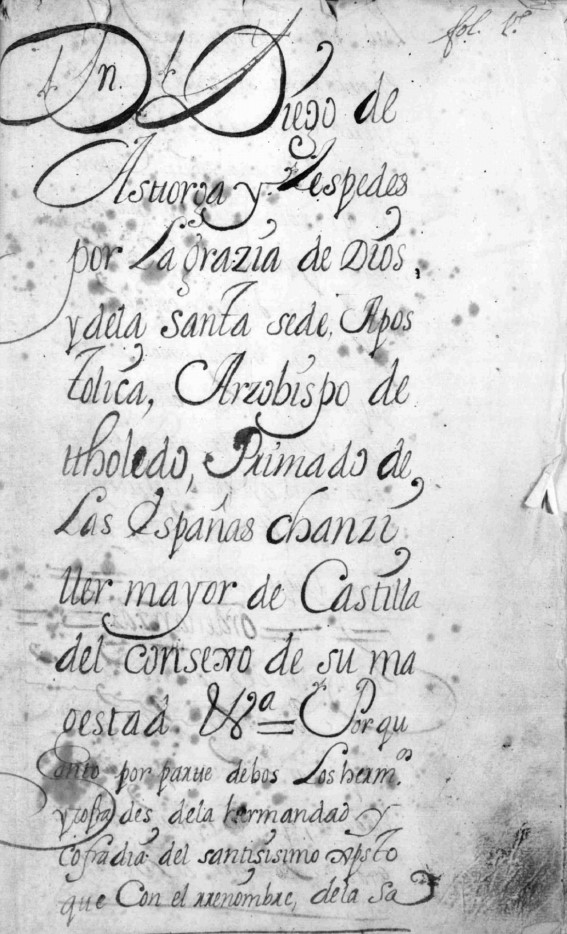 fol. 1º.
Dn. Diego de
Asttorga y Zespedes
por La grazia de Dios,
y dela Santa sede, Apos
tolica, Arzobispo de
ttholedo, Primado de
Las Españas chanzi
ller mayor de Castilla
del Consexo de su ma
gestad. &ª = Por qu
anto por partte debos Los hermos.
y cofrades dela hermandad y
Cofradia del santisisimo xpsto
que Con el rrenombre, dela Sa